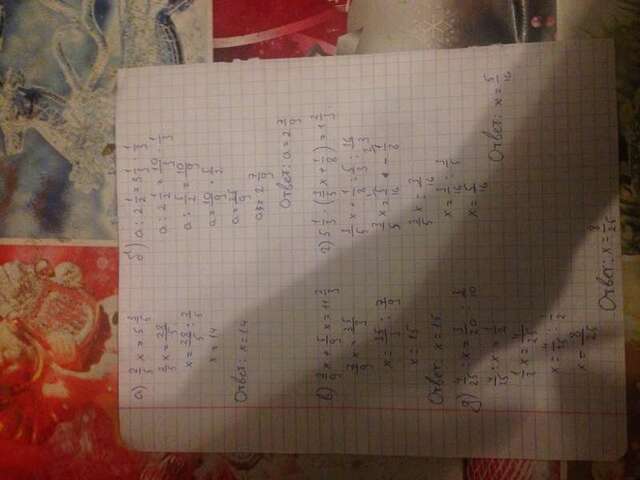 а) 2/5 x = 5 3/5
2/5 x = 28/5
x = 28/5 : 2/5
x = 14
Ответ: x = 14
б) a : 2 1/2 = 3 1/3 : 1/3
a : 2 1/2 = 10/3 : 1/3
a : 5/2 = 10/9
a = 10/9 · 5/2
a = 25/9
a = 2 7/9
Ответ: a = 2 7/9
в) 2/9 x + 5/9 x = 11 2/3
7/9 x = 35/3
x = 35/3 : 7/9
x = 15
Ответ: x = 15
г) 5 1/3 · (3/5 x + 1/8) = 1 2/3
3/5 x + 1/8 = 5/3 : 16/3
3/5 x = 5/16 - 1/8
3/5 x = 3/16
x = 3/16 : 3/5
x = 5/16
Ответ: x = 5/16
д) 4/25 : x = 3/20 : 3/10
4/25 : x = 1/2
1/2 x = 4/25
x = 4/25 : 1/2
x = 8/25
Ответ: x = 8/25